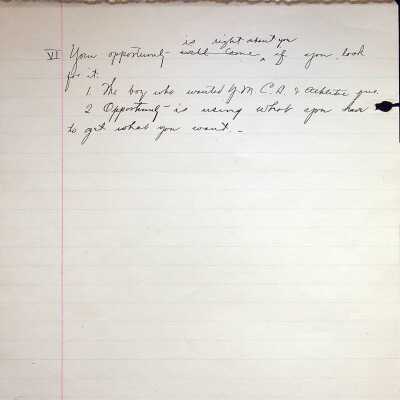 is right about you
VI Your opportunity will come, if you look
for it.
1. The boy who wanted Y.M.C.A. & athletic
2 Opportunity is using what you have
to get what you want.